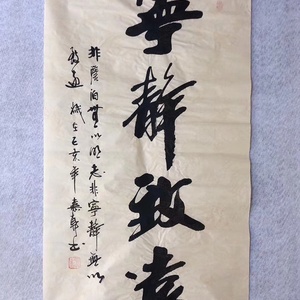 寧靜致遠
非澹泊無以明志非寧靜無以
致遠 歲在己亥年 書